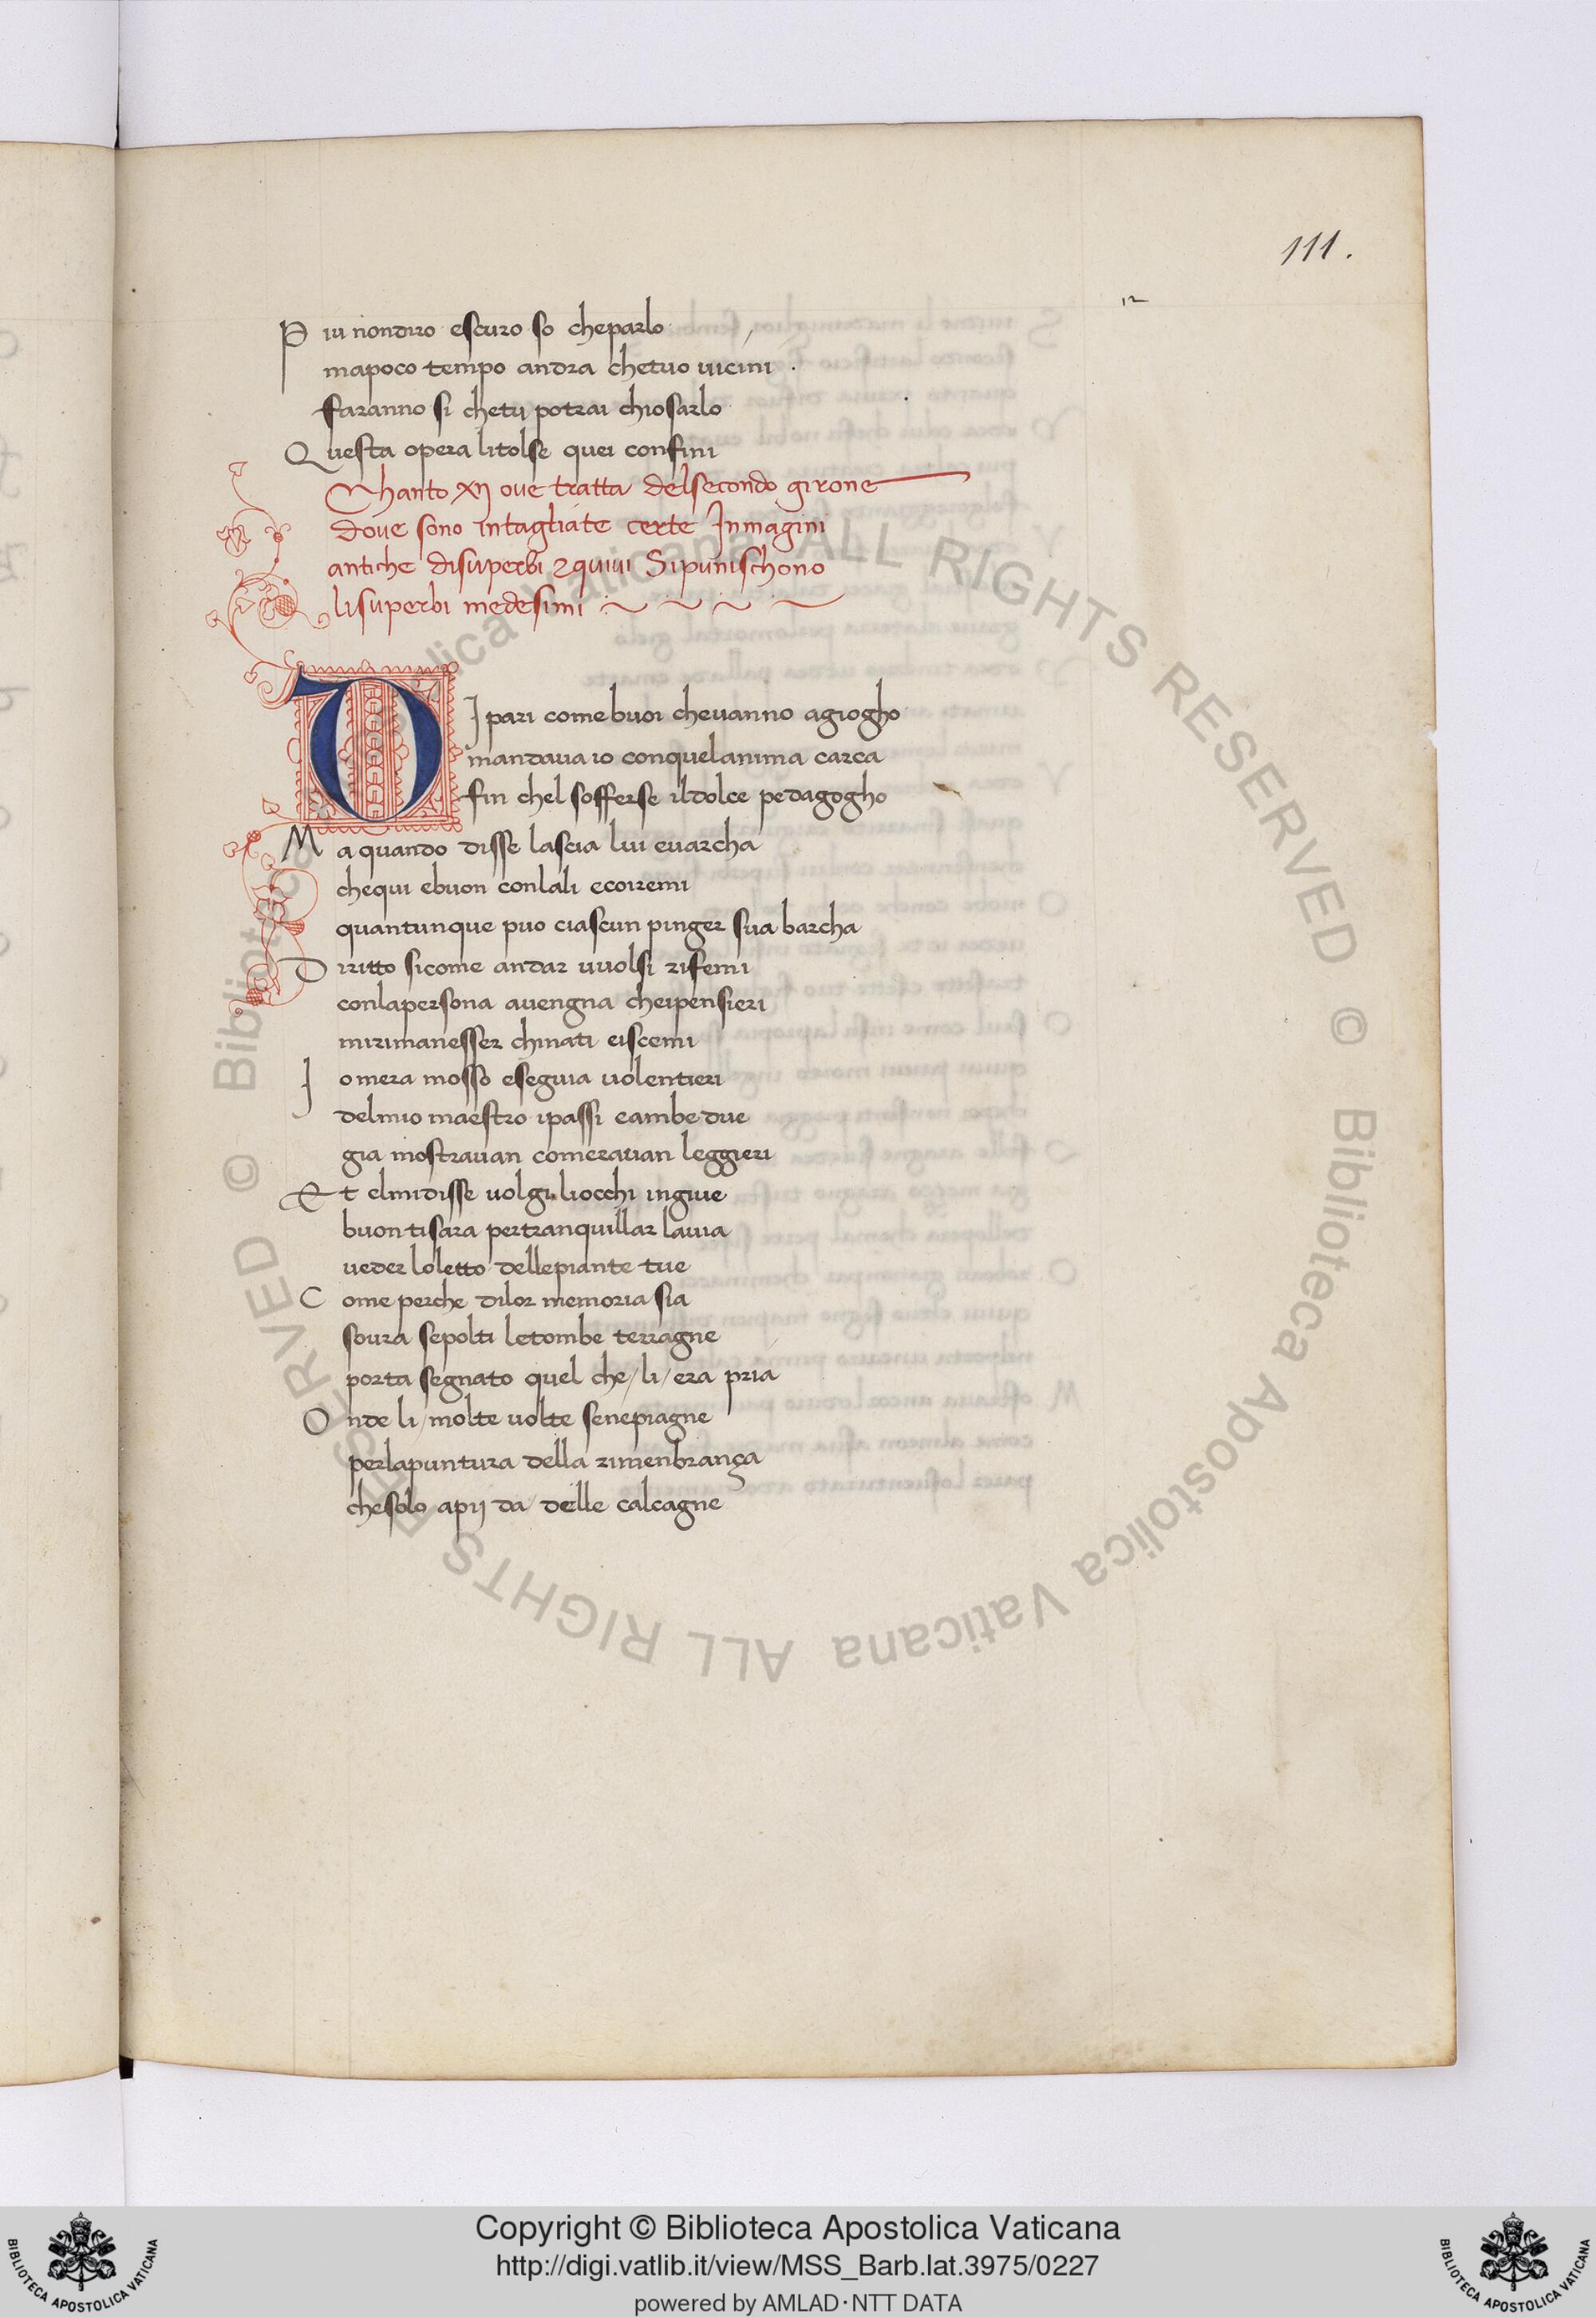 111.
12
Piu nondiro escuro so cheparlo
mapoco tempo andra chetuo uicini .
faranno si chetu potrai chiosarlo
Questa opera litolse quei confini
Chanto xij oue tratta delsecondo girone
doue sono intagliate certe Inmagini
antiche disuperbi 2quiui Sipunischono
lisuperbi medesimi
DI pari comebuoi cheuanno agiogho
mandaua io conquelanima carca
fin chel sofferse ildolce pedagogho
Ma quando disse lascia lui euarcha
chequi ebuon conlali ecoiremi
quantunque puo ciascun pinger sua barcha
Diritto sicome andar uuolsi rifemi
conlapersona auengna cheipensieri
mirimanesser chinati eiscemi
Iomera mosso eseguia uolentieri
delmio maestro ipassi eambedue
gia mostrauan comerauan leggieri
Et elmidisse uolgi liocchi ingiue
buontisara pertranquillar lauia
ueder loletto dellepiante tue
Come perche dilor memoria sia
soura sepolti letombe terragne
porta segnato quel che/li/era pria
Onde li/molte uolte senepiagne
perlapuntura della rimenbrança
chesolo apij da/delle calcagne
© Biblioteca Apostolica Vaticana ALL RIGHTS RESERVED © Biblioteca Apostolica Vaticana ALL RIGHTS RESERVED
Copyright © Biblioteca Apostolica Vaticana
http://digi.vatlib.it/view/MSS_Barb.lat.3975/0227
powered by AMLAD·NTT DATA
BIBLIOTECA APOSTOLICA VATICANA
BIBLIOTECA APOSTOLICA VATICANA